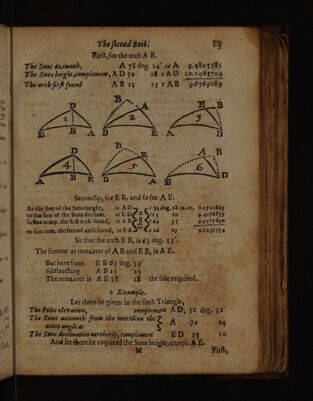 The second Book. 89
First, for the arch A B.
The Suns azimuth, A 78 deg. 24' is A 9.4805385
The Suns height, complement, A D 32 28 t A D 10.1963704
The arch first found A B 25 25 t A B 9.6769089
D D B A E B
1 2 3
E B A E D A D
D B A B
4 5 6
A E B A E D E D
Secondly, for E B, and so for A E.
As the sine of the Suns height, is A D
to the sine of the Suns declinat. is E D 15 20
so sine com. the first arch found, is A B 25
to sine com. the second arch found, is E B 26 07
So that the arch E B, is 63 deg. 53'.
The summe or remainer of A B and E B, is A E.
But here from E B 63 deg. 53'
subtracting A B 25 25
The remainer is A E 38 28 the side required.
2 Example.
Let there be given in the sixth Triangle,
The Poles elevation, complement A D, 51 deg. 32'
The Suns azimuth from the meridian the
acute angle at A 72 24
The Suns declination northerly, complement E D 15 20
And let there be required the Suns height, compl. A E.
M First,